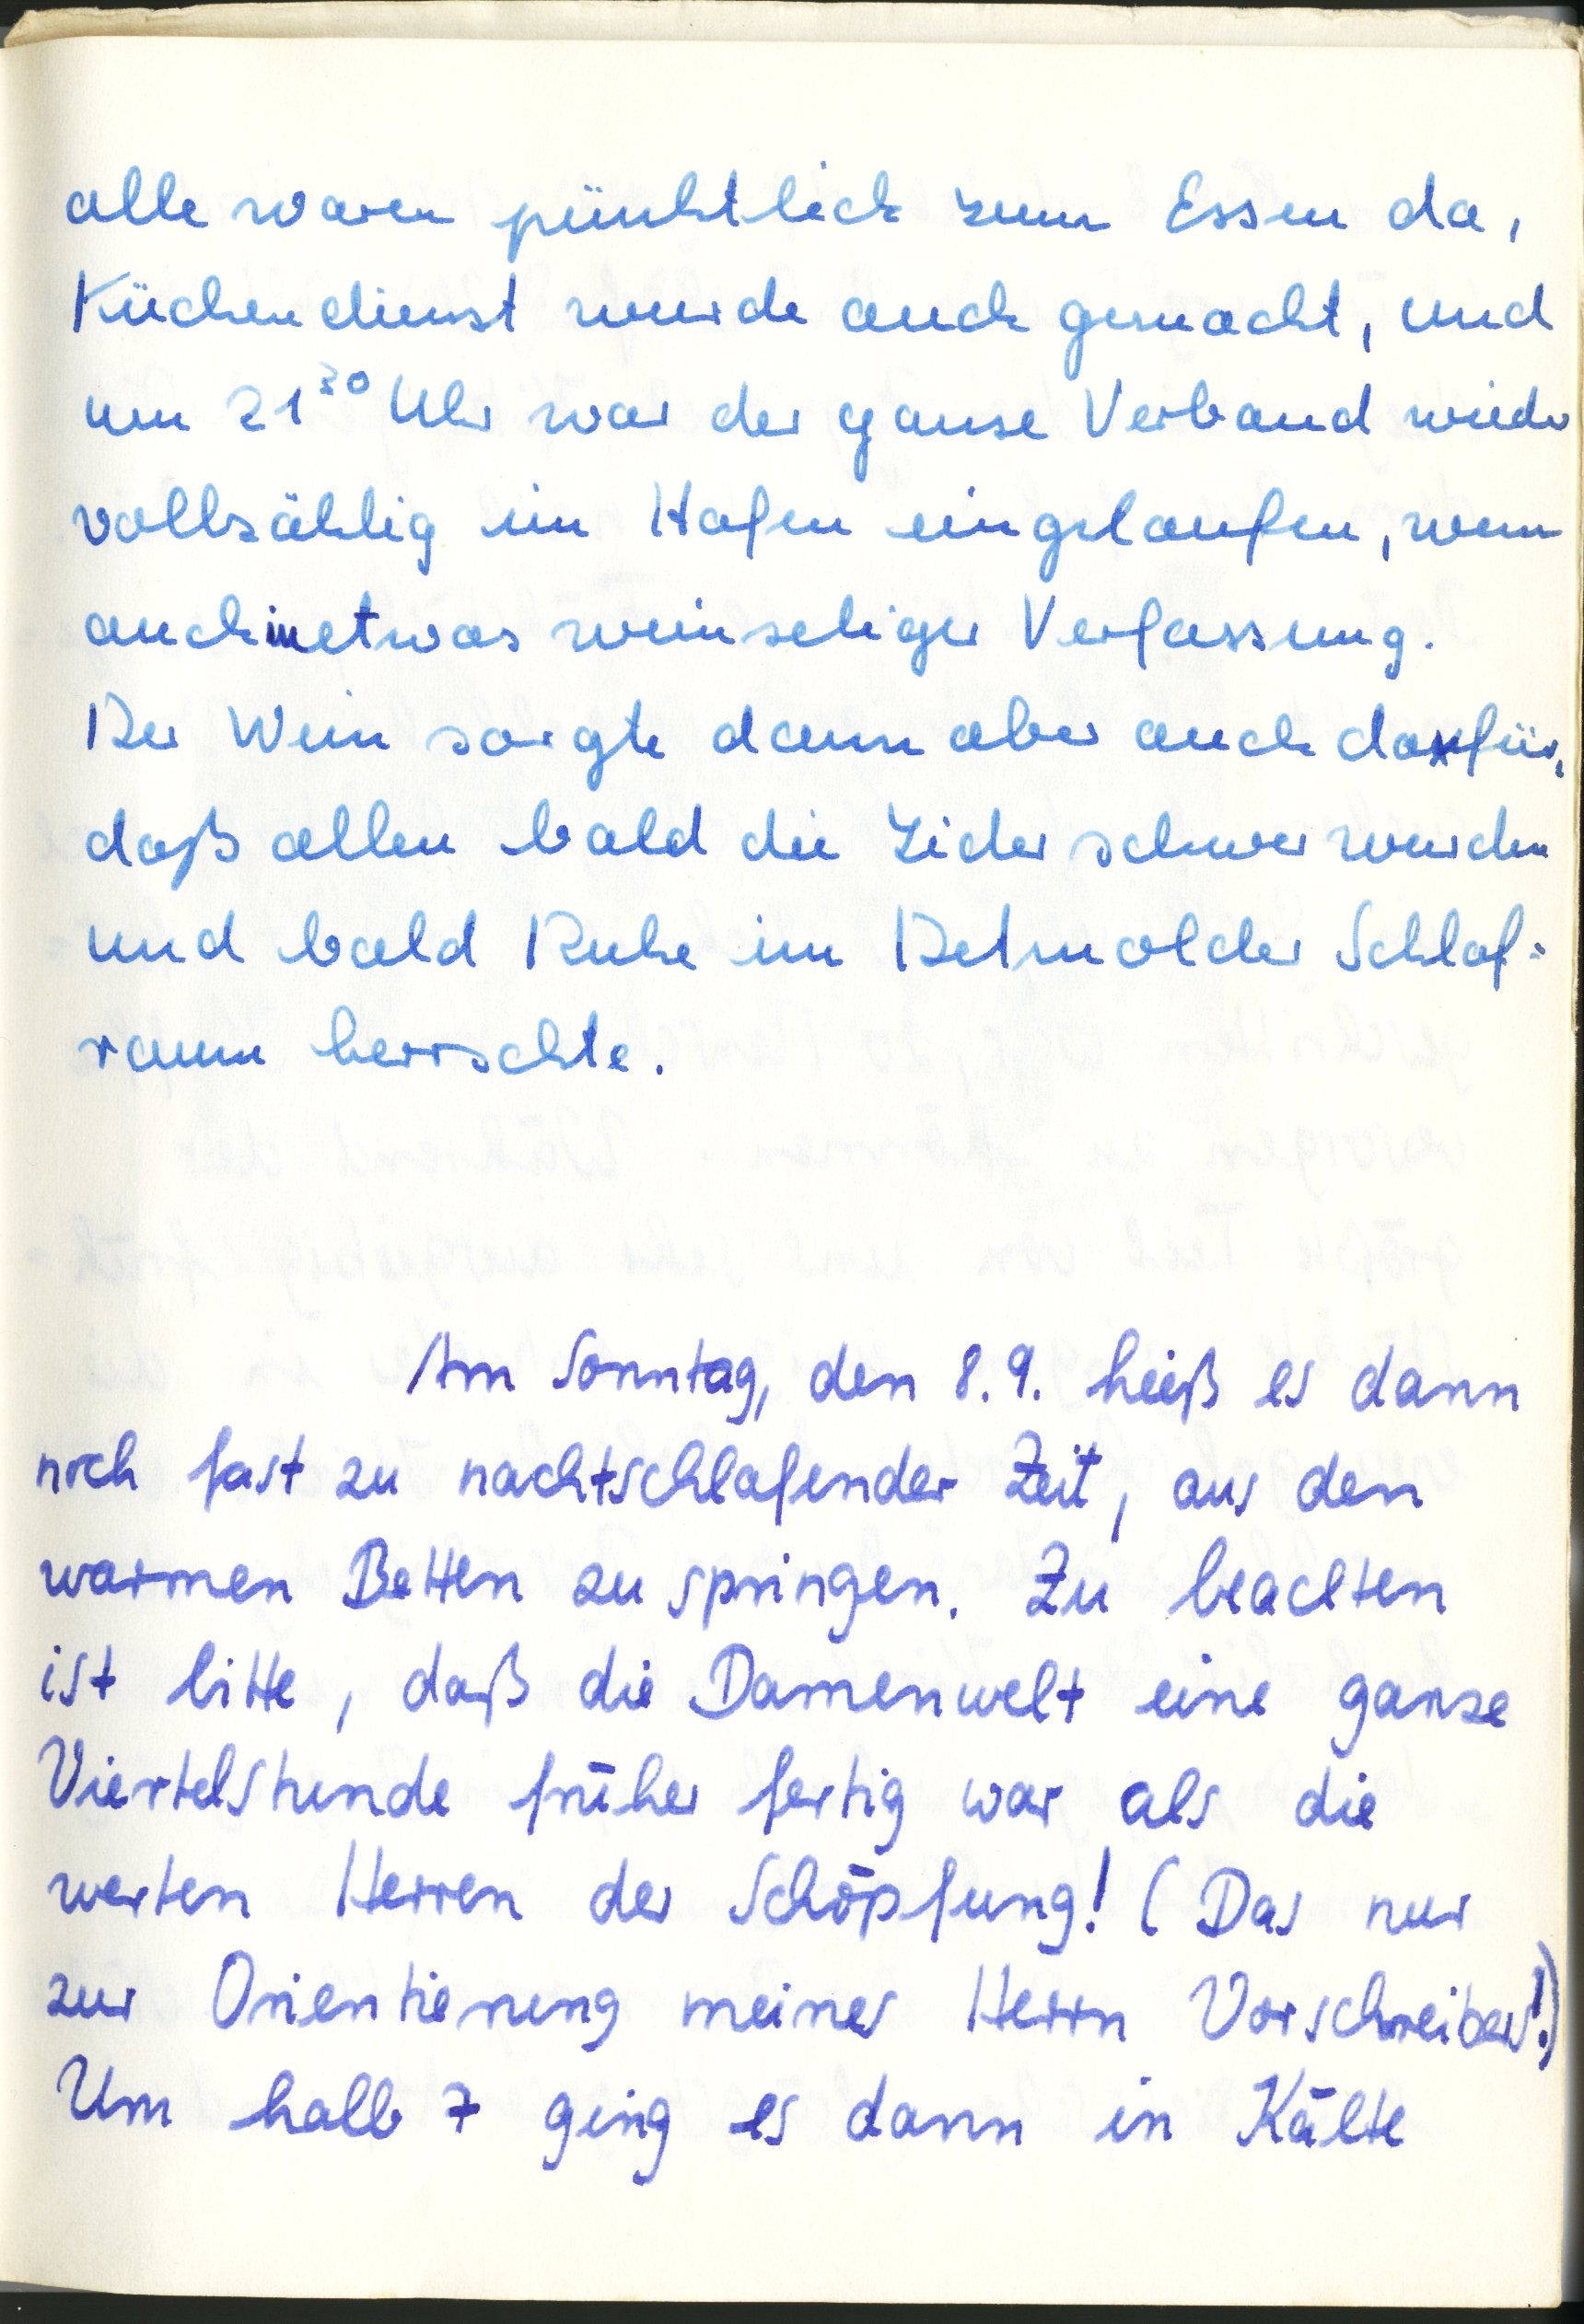 alle waren pünktlich zum Essen da,
Küchendienst wurde auch gemacht, und
um 21³⁰ Uhr war der ganze Verband wieder
vollzählig im Hafen eingelaufen, wenn
auch in etwas weinseliger Verfassung.
Der Wein sorgte dann aber auch dafür,
daß allen bald die Lider schwer wurden
und bald Ruhe im Detmolder Schlaf=
raum herrschte.
Am Sonntag, den 8.9. hieß es dann
noch fast zu nachtschlafender Zeit, aus den
warmen Betten zu springen. Zu beachten
ist bitte, daß die Damenwelt eine ganze
Viertelstunde früher fertig war als die
werten Herren der Schöpfung! (Das nur
zur Orientierung meines Herrn Vorschreibers!)
Um halb 7 ging es dann in Kälte